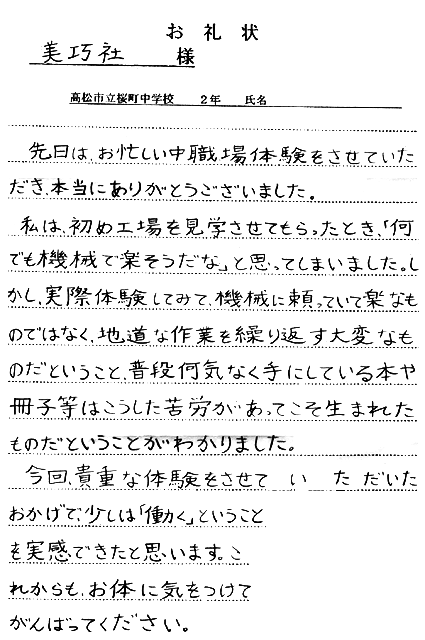 お礼状
美巧社 様
高松市立桜町中学校 2年 氏名
先日は、お忙しい中職場体験をさせていた
だき、本当にありがとうございました。
私は、初め工場を見学させてもらったとき、「何
でも機械で楽そうだな」と思ってしまいました。し
かし、実際体験してみて、機械に頼っていて楽なも
のではなく、地道な作業を繰り返す大変なも
のだということ、普段何気なく手にしている本や
冊子等はこうした苦労があってこそ生まれた
ものだということがわかりました。
今回、貴重な体験をさせていただいた
おかげで、少しは「働く」ということ
を実感できたと思います。こ
れからも、お体に気をつけて
がんばってください。